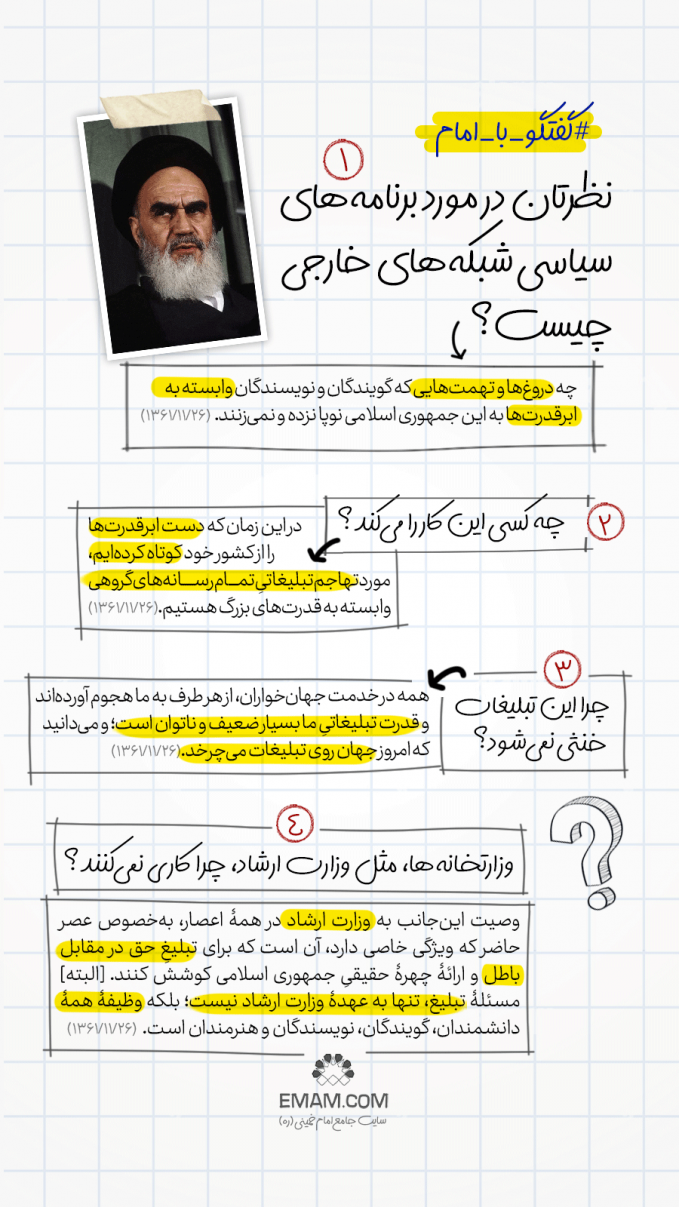 #گفتگو_با_امام
۱
نظرتان در مورد برنامه‌های
سیاسی شبکه‌های خارجی
چیست؟
چه دروغ‌ها و تهمت‌هایی که گویندگان و نویسندگان وابسته به
ابرقدرت‌ها به این جمهوری اسلامی نوپا نزده و نمی‌زنند. (۱۳۶۱/۱۱/۲۶)
۲
چه کسی این کار را می‌کند؟
در این زمان که دست ابرقدرت‌ها
را از کشور خود کوتاه کرده‌ایم،
مورد تهاجم تبلیغاتیِ تمـام رســانه‌های گروهی
وابسته به قدرت‌های بزرگ هستیم. (۱۳۶۱/۱۱/۲۶)
۳
چرا این تبلیغات
خنثی نمی‌شود؟
همه در خدمت جهان‌خواران، از هر طرف به ما هجوم آورده‌اند
و قدرت تبلیغاتیِ ما بسیار ضعیف و ناتوان است؛ و می‌دانید
که امروز جهان روی تبلیغات می‌چرخد. (۱۳۶۱/۱۱/۲۶)
٤
وزارتخانه‌ها، مثل وزارت ارشاد، چرا کاری نمی‌کنند؟
وصیت این‌جانب به وزارت ارشاد در همهٔ اعصار، به‌خصوص عصر
حاضر که ویژگی خاصی دارد، آن است که برای تبلیغِ حق در مقابل
باطل و ارائهٔ چهرهٔ حقیقیِ جمهوری اسلامی کوشش کنند. [البته]
مسئلهٔ تبلیغ، تنها به عهدهٔ وزارت ارشاد نیست؛ بلکه وظیفهٔ همهٔ
دانشمندان، گویندگان، نویسندگان و هنرمندان است. (۱۳۶۱/۱۱/۲۶)
EMAM.COM
سایت جامع امام خمینی (ره)